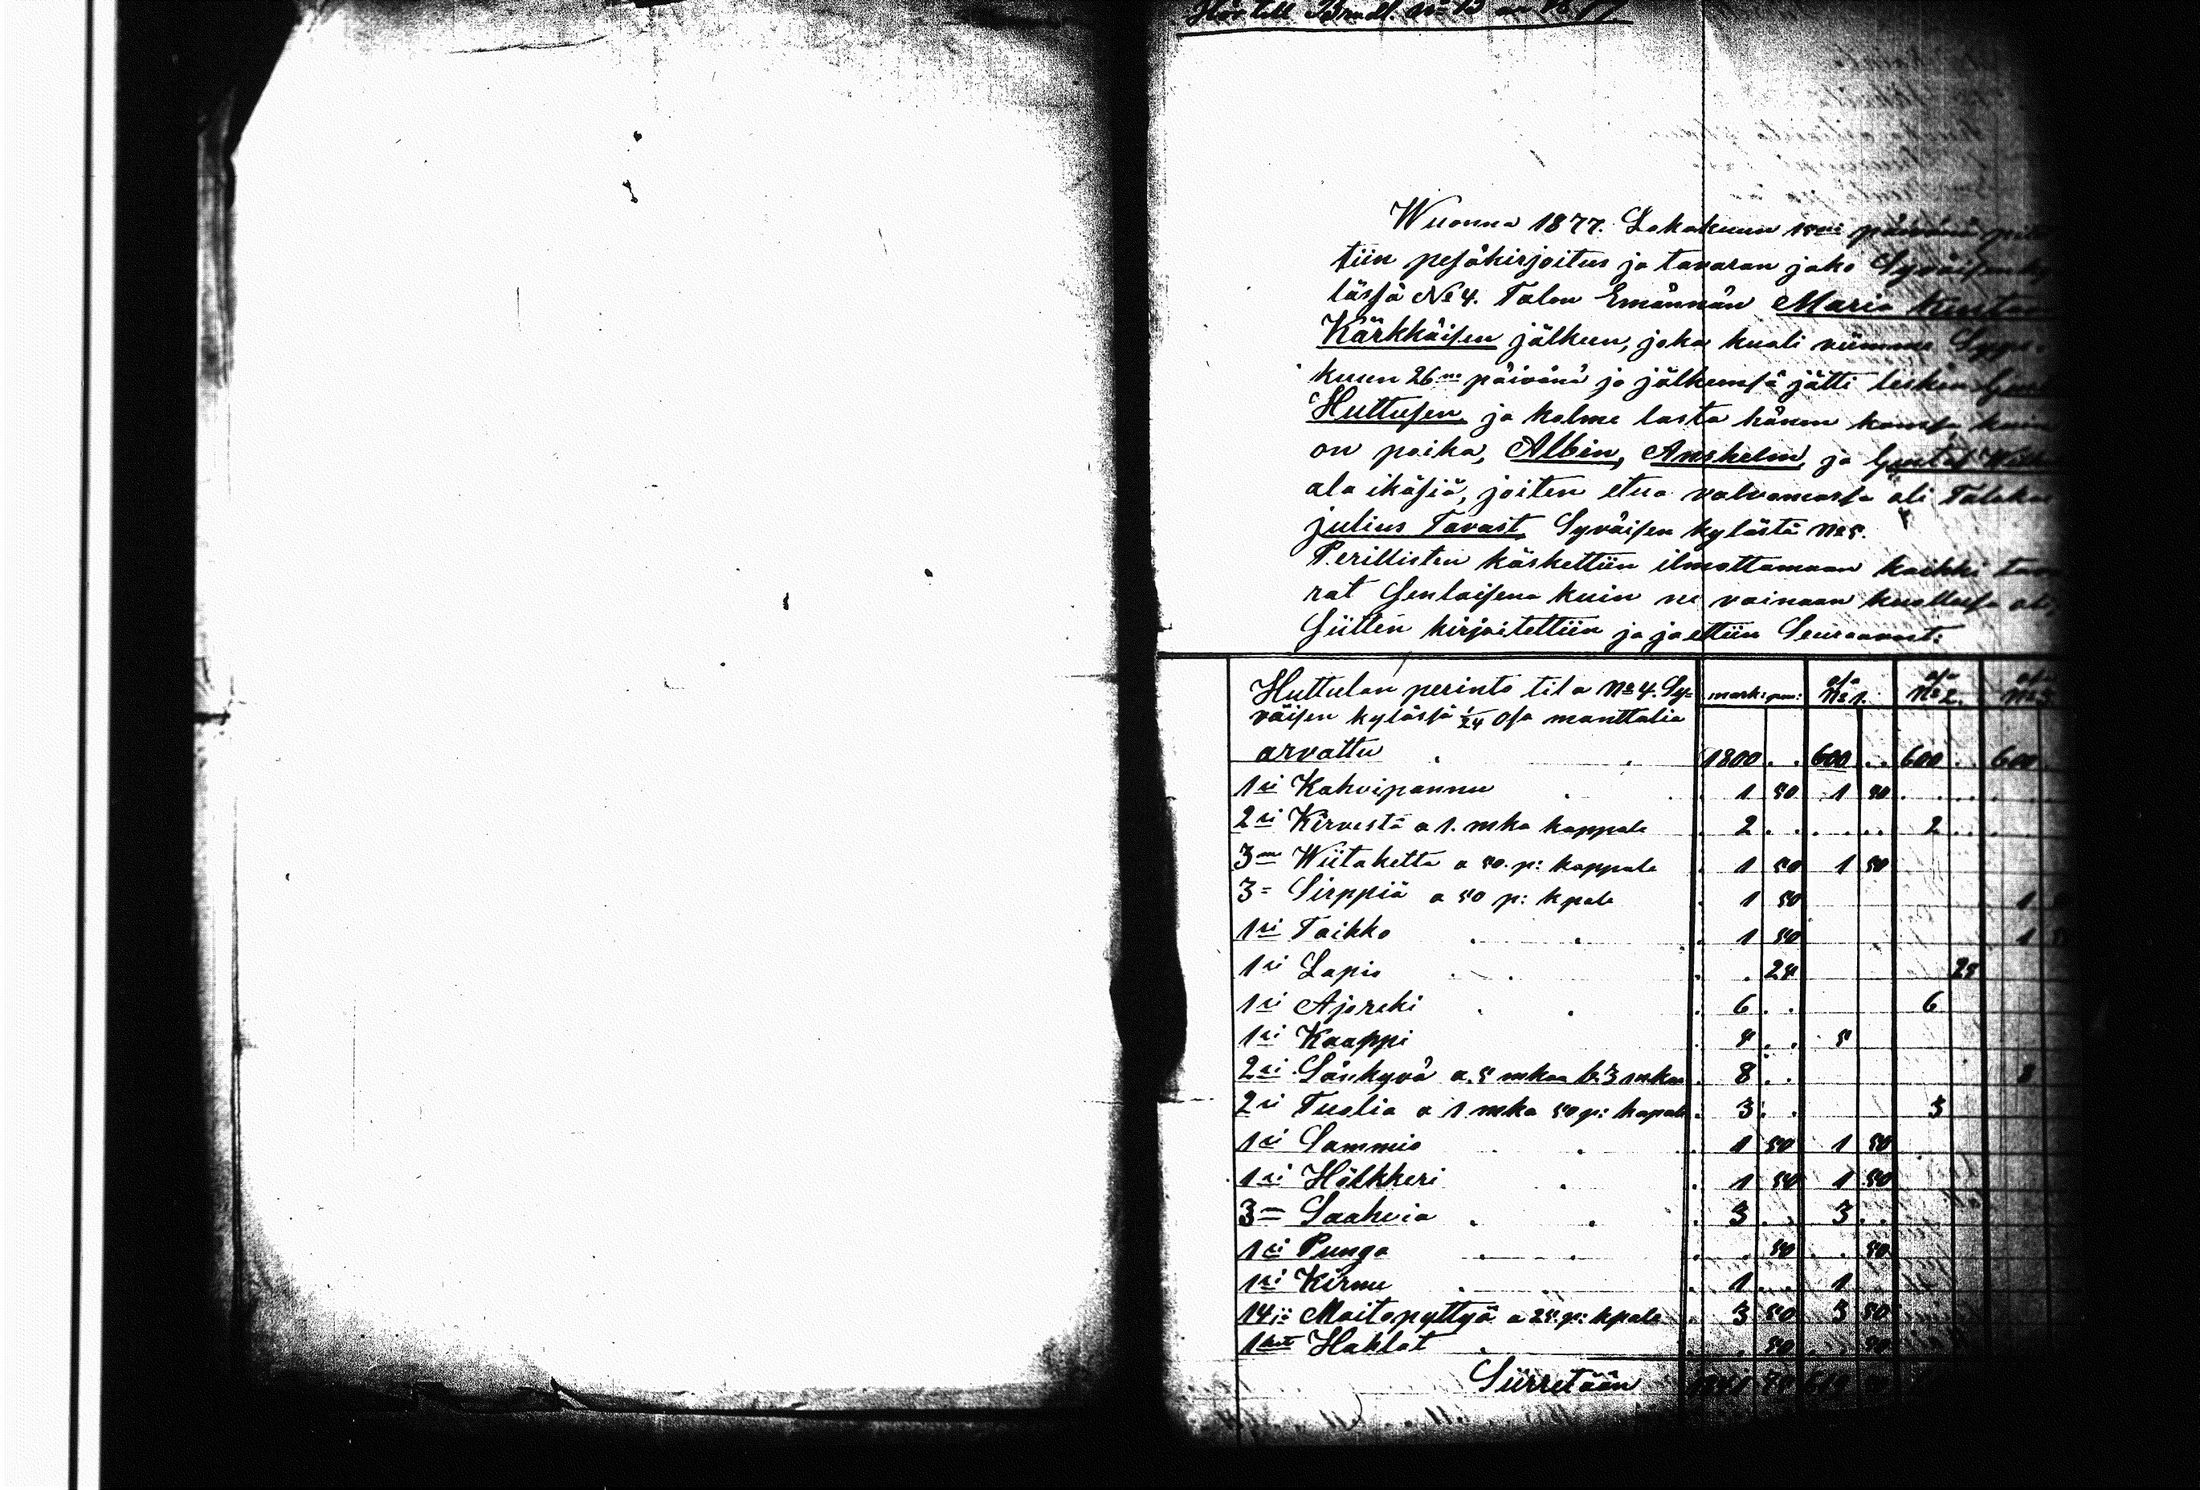 Wuonna 1877. Lokakuun päivänä pidet
tiin pesäkirjoitus ja tavaran jako Syväisenky
lässä No 4. Talon Emännän Maria Kustaa
Kärkkäisen jälkeen, joka kuoli viimme Syys-
kuun 26 päivänä ja jälkeensä jätti lesken
Huttusen ja kolme lasta hänen kanssa
on poika, Albin, Anshelm, ja Gustaf
ala ikäsiä, joiten etua valvomassa oli
Julius Tavast Syväisen kylästä No 5.
Perillisten käskettiin ilmottamaan kaikki
rat Senlaisena kuin ne vainaan kuollessa
Siitten kirjoitettiin ja jaettiin Seuraavast:
Huttulan perinto tila No 4. Sy= mark: pen: osa No 1. osa No 2. osa No 3
väisen kylässä 1/24 Osa manttalia
arvattu 1800 . . 600 . . 600 . . 600
1si Kahvipannu 1 50 1 50
2si Kirvestä a 1. mka kappale 2 . . 2
3me Wiitaketta a 50. p: kappale 1 50 1 50
3= Sirppiä a 50 p: kpale 1 50 1
1si Taikko 1 50 1
1si Lapio . 25 25
1si Ajoreki 6 . . 6
1si Kaappi 5 . . 5
2si Sänkyvä a. 5 mkaa b. 3 mkaa 8 . . 8
2si Tuolia a 1 mka 50 p: kapale 3 . . 3
1si Sammio 1 50 1 50
1si Hölkkeri 1 50 1 50
3= Saahvia 3 . . 3 . .
1si Punga . 50 . 50
1si Kirnu 1 . . 1
14si Maitopyttyä a 25. p: kpale 3 50 3 50
1 Haklat . 50 . 50
Siirretään